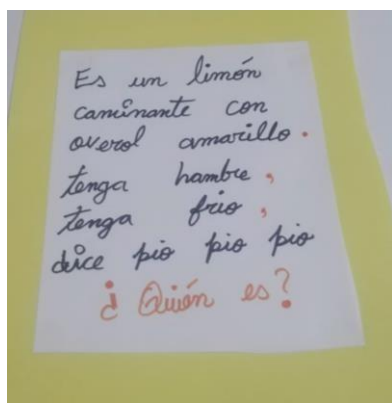 Es un limón
caminante con
overol amarillo.
tenga hambre,
tenga frio,
dice pio pio pio
¿Quién es?